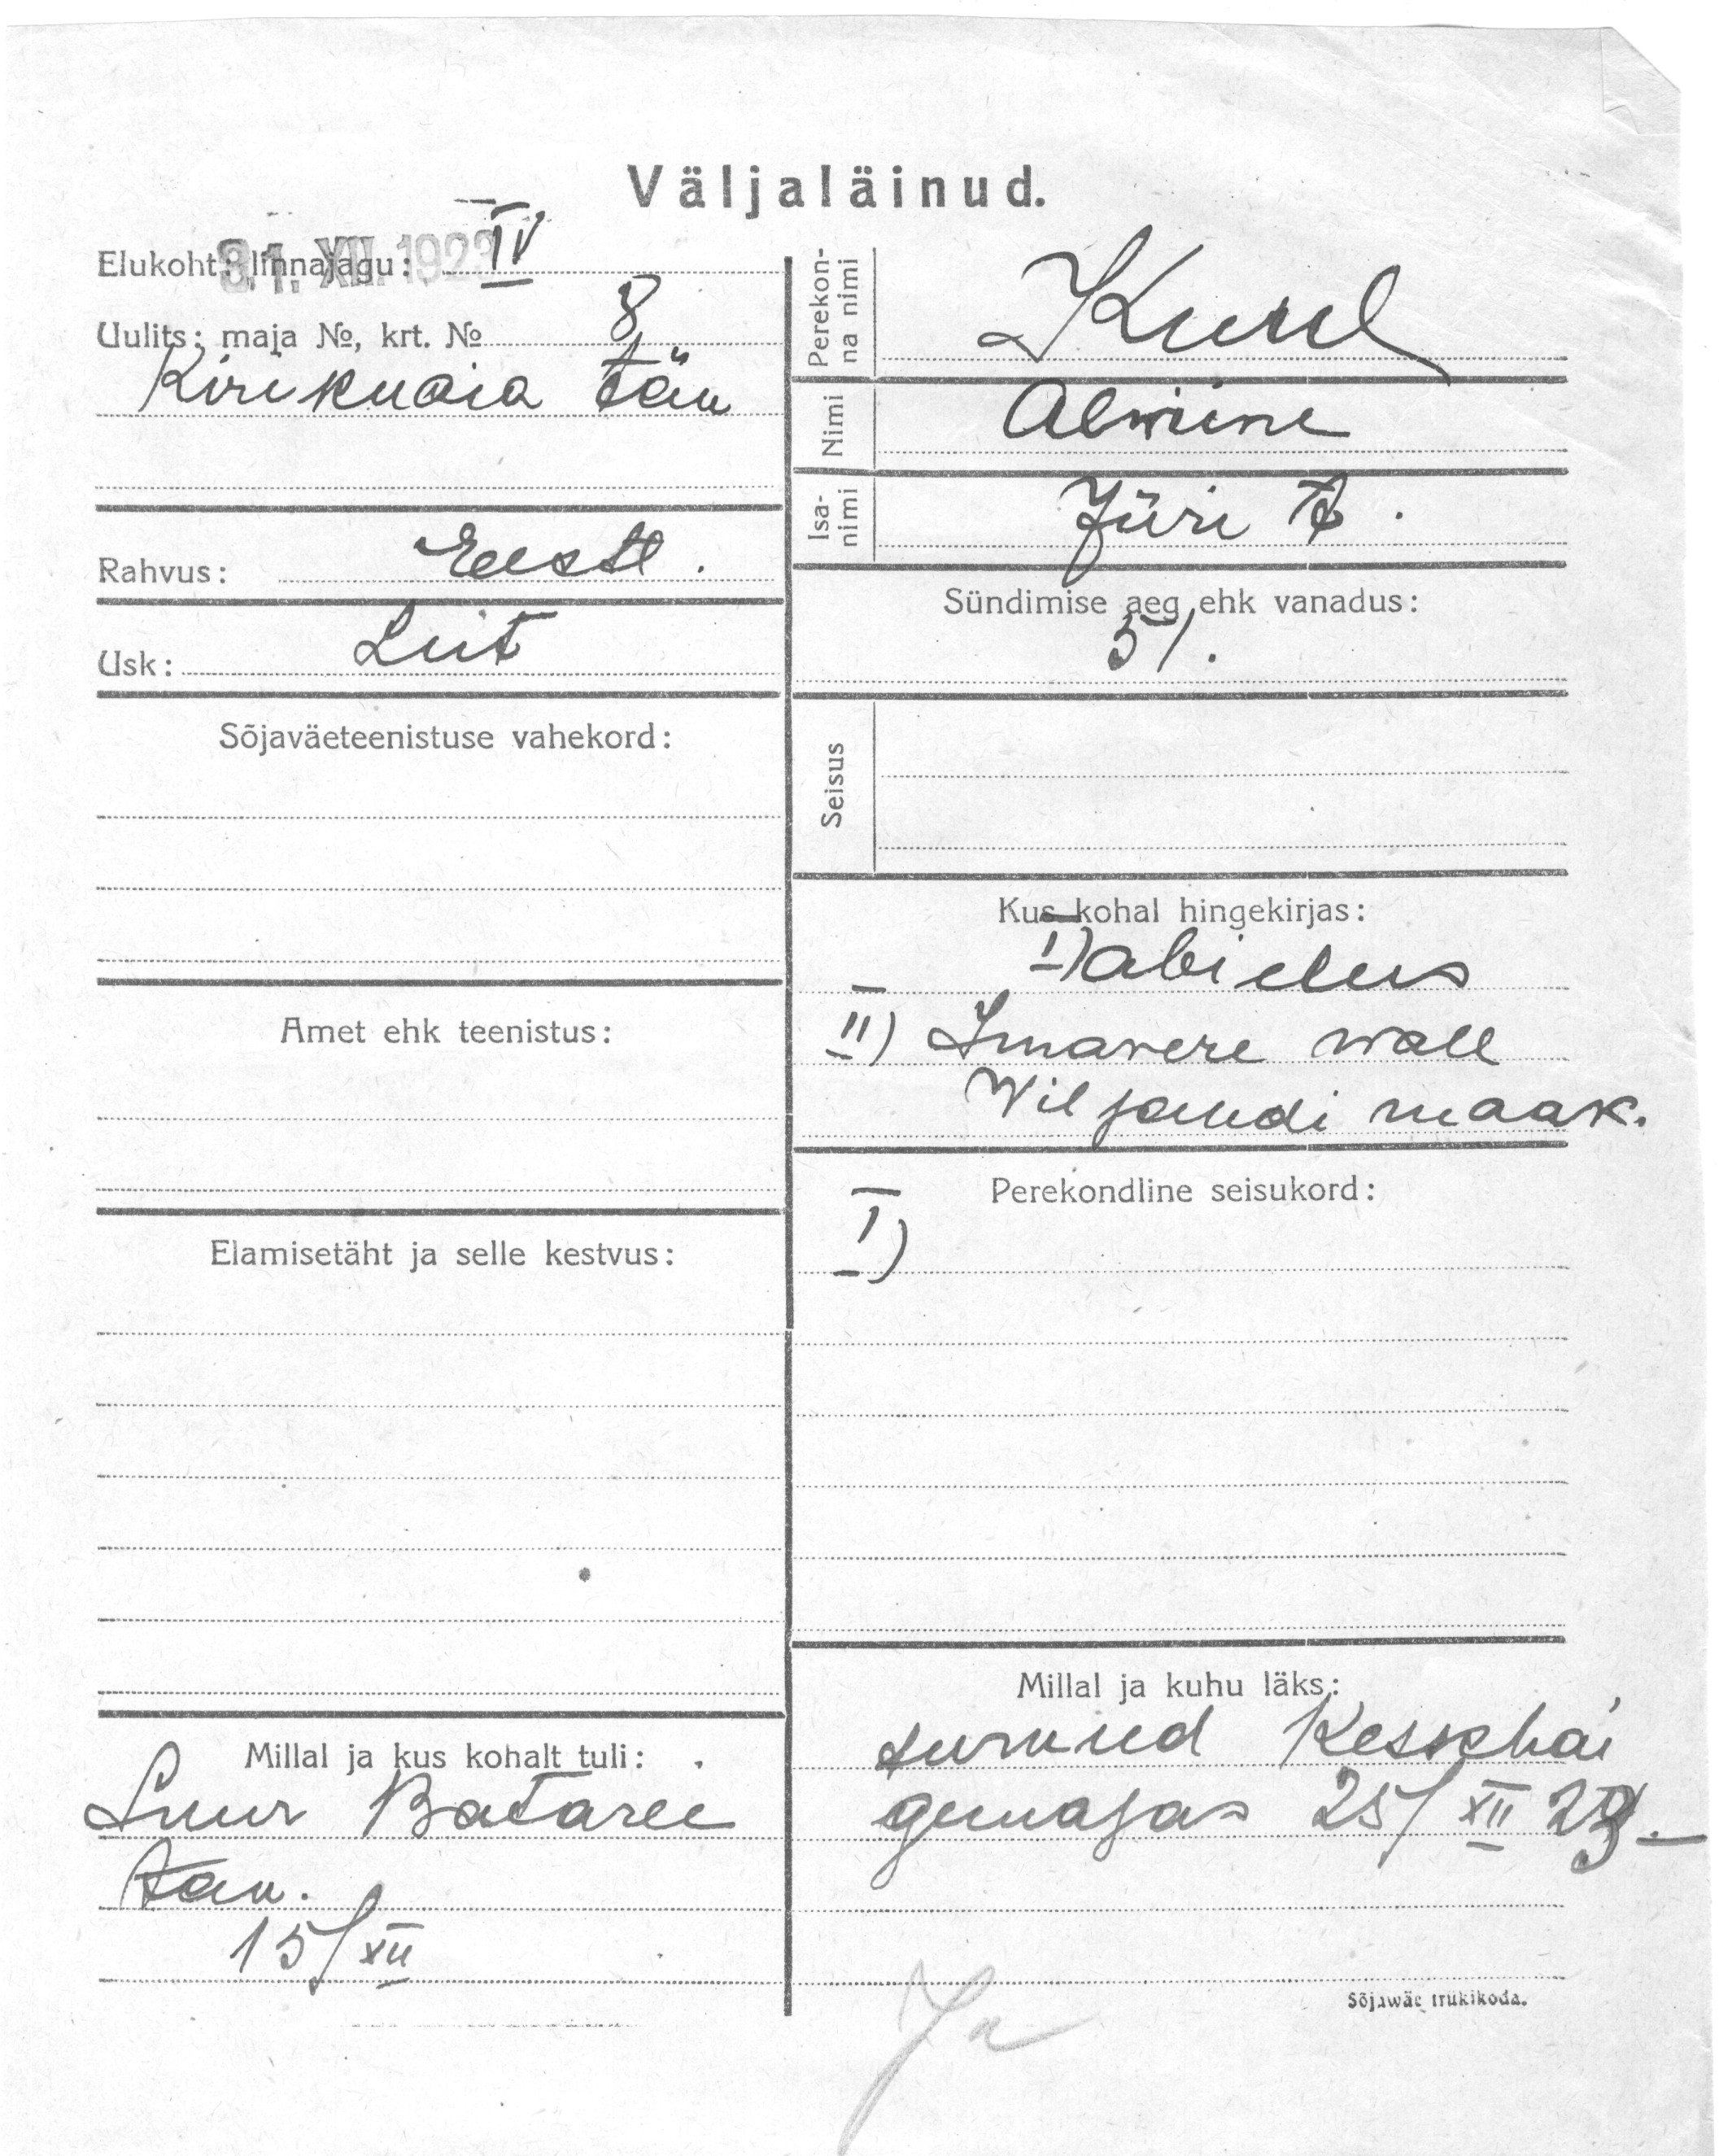 Väljaläinud.
31. XII. 1923
Elukoht: linnajagu: IV
Uulits; maja №, krt. № 8
Kirikuaia tän
Rahvus: Eesti.
Usk: Lut
Sõjaväeteenistuse vahekord:
Amet ehk teenistus:
Elamisetäht ja selle kestvus:
Millal ja kus kohalt tuli:
Suur Bataree
tan.
15/XII
Perekon-
na nimi
Kuul
Nimi Alwine
Isa-
nimi
Jüri t.
Sündimise aeg ehk vanadus:
51.
Seisus
Kus kohal hingekirjas:
I) abielus
II) Imavere wall
Wiljandi maak.
Perekondline seisukord:
I)
Millal ja kuhu läks:
surnud Keskhai
gemajas 25/XII 23.
Sõjawäe trükikoda.